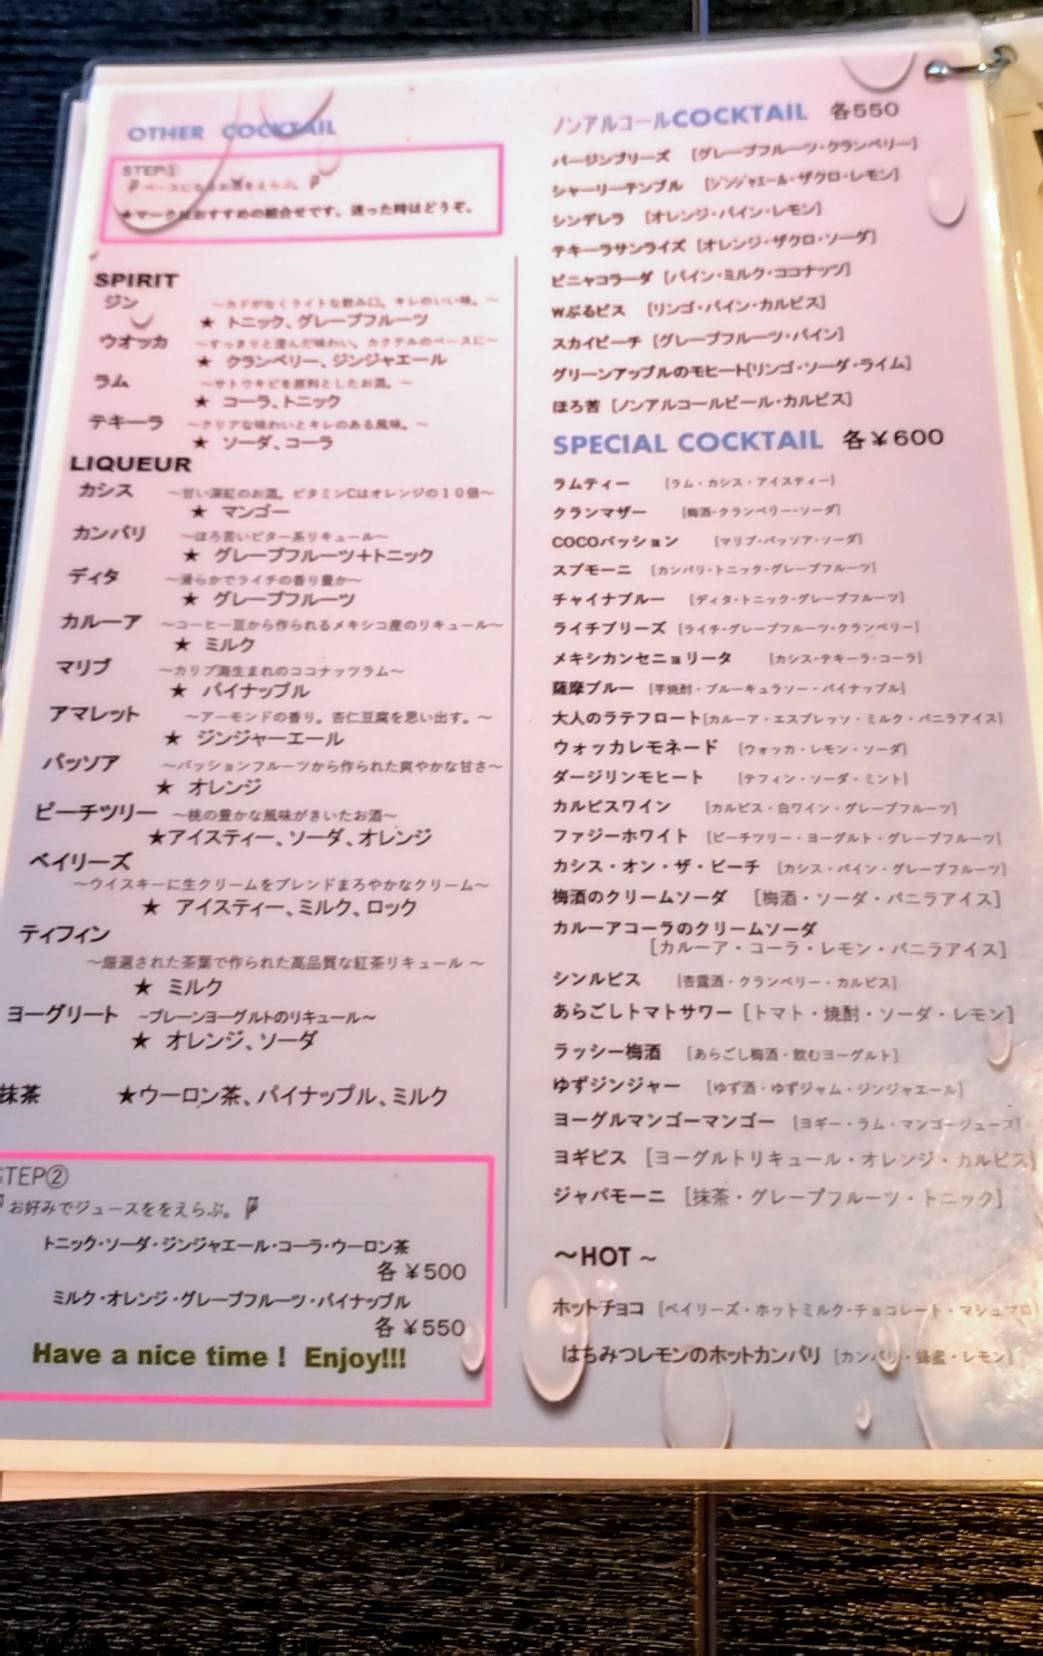 OTHER COCKTAIL
STEP①
ベースになるお酒をえらぶ。
★マークはおすすめの組合せです。迷った時はどうぞ。
SPIRIT
ジン ～カドがなくライトな飲み口。キレのいい味。～
★ トニック、グレープフルーツ
ウオッカ ～すっきりと澄んだ味わい。カクテルのベースに～
★ クランベリー、ジンジャエール
ラム ～サトウキビを原料としたお酒。～
★ コーラ、トニック
テキーラ ～クリアな味わいとキレのある風味。～
★ ソーダ、コーラ
LIQUEUR
カシス ～甘い深紅のお酒。ビタミンCはオレンジの10倍～
★ マンゴー
カンパリ ～ほろ苦いビター系リキュール～
★ グレープフルーツ+トニック
ディタ ～滑らかでライチの香り豊か～
★ グレープフルーツ
カルーア ～コーヒー豆から作られるメキシコ産のリキュール～
★ ミルク
マリブ ～カリブ海生まれのココナッツラム～
★ パイナップル
アマレット ～アーモンドの香り。杏仁豆腐を思い出す。～
★ ジンジャーエール
パッソア ～パッションフルーツから作られた爽やかな甘さ～
★ オレンジ
ピーチツリー ～桃の豊かな風味がきいたお酒～
★アイスティー、ソーダ、オレンジ
ベイリーズ
～ウイスキーに生クリームをブレンドまろやかなクリーム～
★ アイスティー、ミルク、ロック
ティフィン
～厳選された茶葉で作られた高品質な紅茶リキュール ～
★ ミルク
ヨーグリート ~プレーンヨーグルトのリキュール～
★ オレンジ、ソーダ
抹茶 ★ウーロン茶、パイナップル、ミルク
STEP②
お好みでジュースををえらぶ。
トニック・ソーダ・ジンジャエール・コーラ・ウーロン茶
各 ¥500
ミルク・オレンジ・グレープフルーツ・パイナップル
各 ¥550
Have a nice time！ Enjoy!!!
ノンアルコールCOCKTAIL 各550
バージンブリーズ [グレープフルーツ・クランベリー]
シャーリーテンプル [ジンジャエール・ザクロ・レモン]
シンデレラ [オレンジ・パイン・レモン]
テキーラサンライズ [オレンジ・ザクロ・ソーダ]
ピニャコラーダ [パイン・ミルク・ココナッツ]
Wぷるピス [リンゴ・パイン・カルピス]
スカイピーチ [グレープフルーツ・パイン]
グリーンアップルのモヒート[リンゴ・ソーダ・ライム]
ほろ苦 [ノンアルコールビール・カルピス]
SPECIAL COCKTAIL 各¥600
ラムティー [ラム・カシス・アイスティー]
クランマザー [梅酒・クランベリー・ソーダ]
COCOパッション [マリブ・パッソア・ソーダ]
スプモーニ [カンパリ・トニック・グレープフルーツ]
チャイナブルー [ディタ・トニック・グレープフルーツ]
ライチブリーズ [ライチ・グレープフルーツ・クランベリー]
メキシカンセニョリータ [カシス・テキーラ・コーラ]
薩摩ブルー [芋焼酎・ブルーキュラソー・パイナップル]
大人のラテフロート[カルーア・エスプレッソ・ミルク・バニラアイス]
ウォッカレモネード [ウォッカ・レモン・ソーダ]
ダージリンモヒート [テフィン・ソーダ・ミント]
カルピスワイン [カルピス・白ワイン・グレープフルーツ]
ファジーホワイト [ピーチツリー・ヨーグルト・グレープフルーツ]
カシス・オン・ザ・ビーチ [カシス・パイン・グレープフルーツ]
梅酒のクリームソーダ [梅酒・ソーダ・バニラアイス]
カルーアコーラのクリームソーダ
[カルーア・コーラ・レモン・バニラアイス]
シンルピス [杏露酒・クランベリー・カルピス]
あらごしトマトサワー [トマト・焼酎・ソーダ・レモン]
ラッシー梅酒 [あらごし梅酒・飲むヨーグルト]
ゆずジンジャー [ゆず酒・ゆずジャム・ジンジャエール]
ヨーグルマンゴーマンゴー [ヨギー・ラム・マンゴージュース]
ヨギピス [ヨーグルトリキュール・オレンジ・カルピス]
ジャパモーニ [抹茶・グレープフルーツ・トニック]
～HOT ~
ホットチョコ [ベイリーズ・ホットミルク・チョコレート・マシュマロ]
はちみつレモンのホットカンパリ [カンパリ・蜂蜜・レモン]